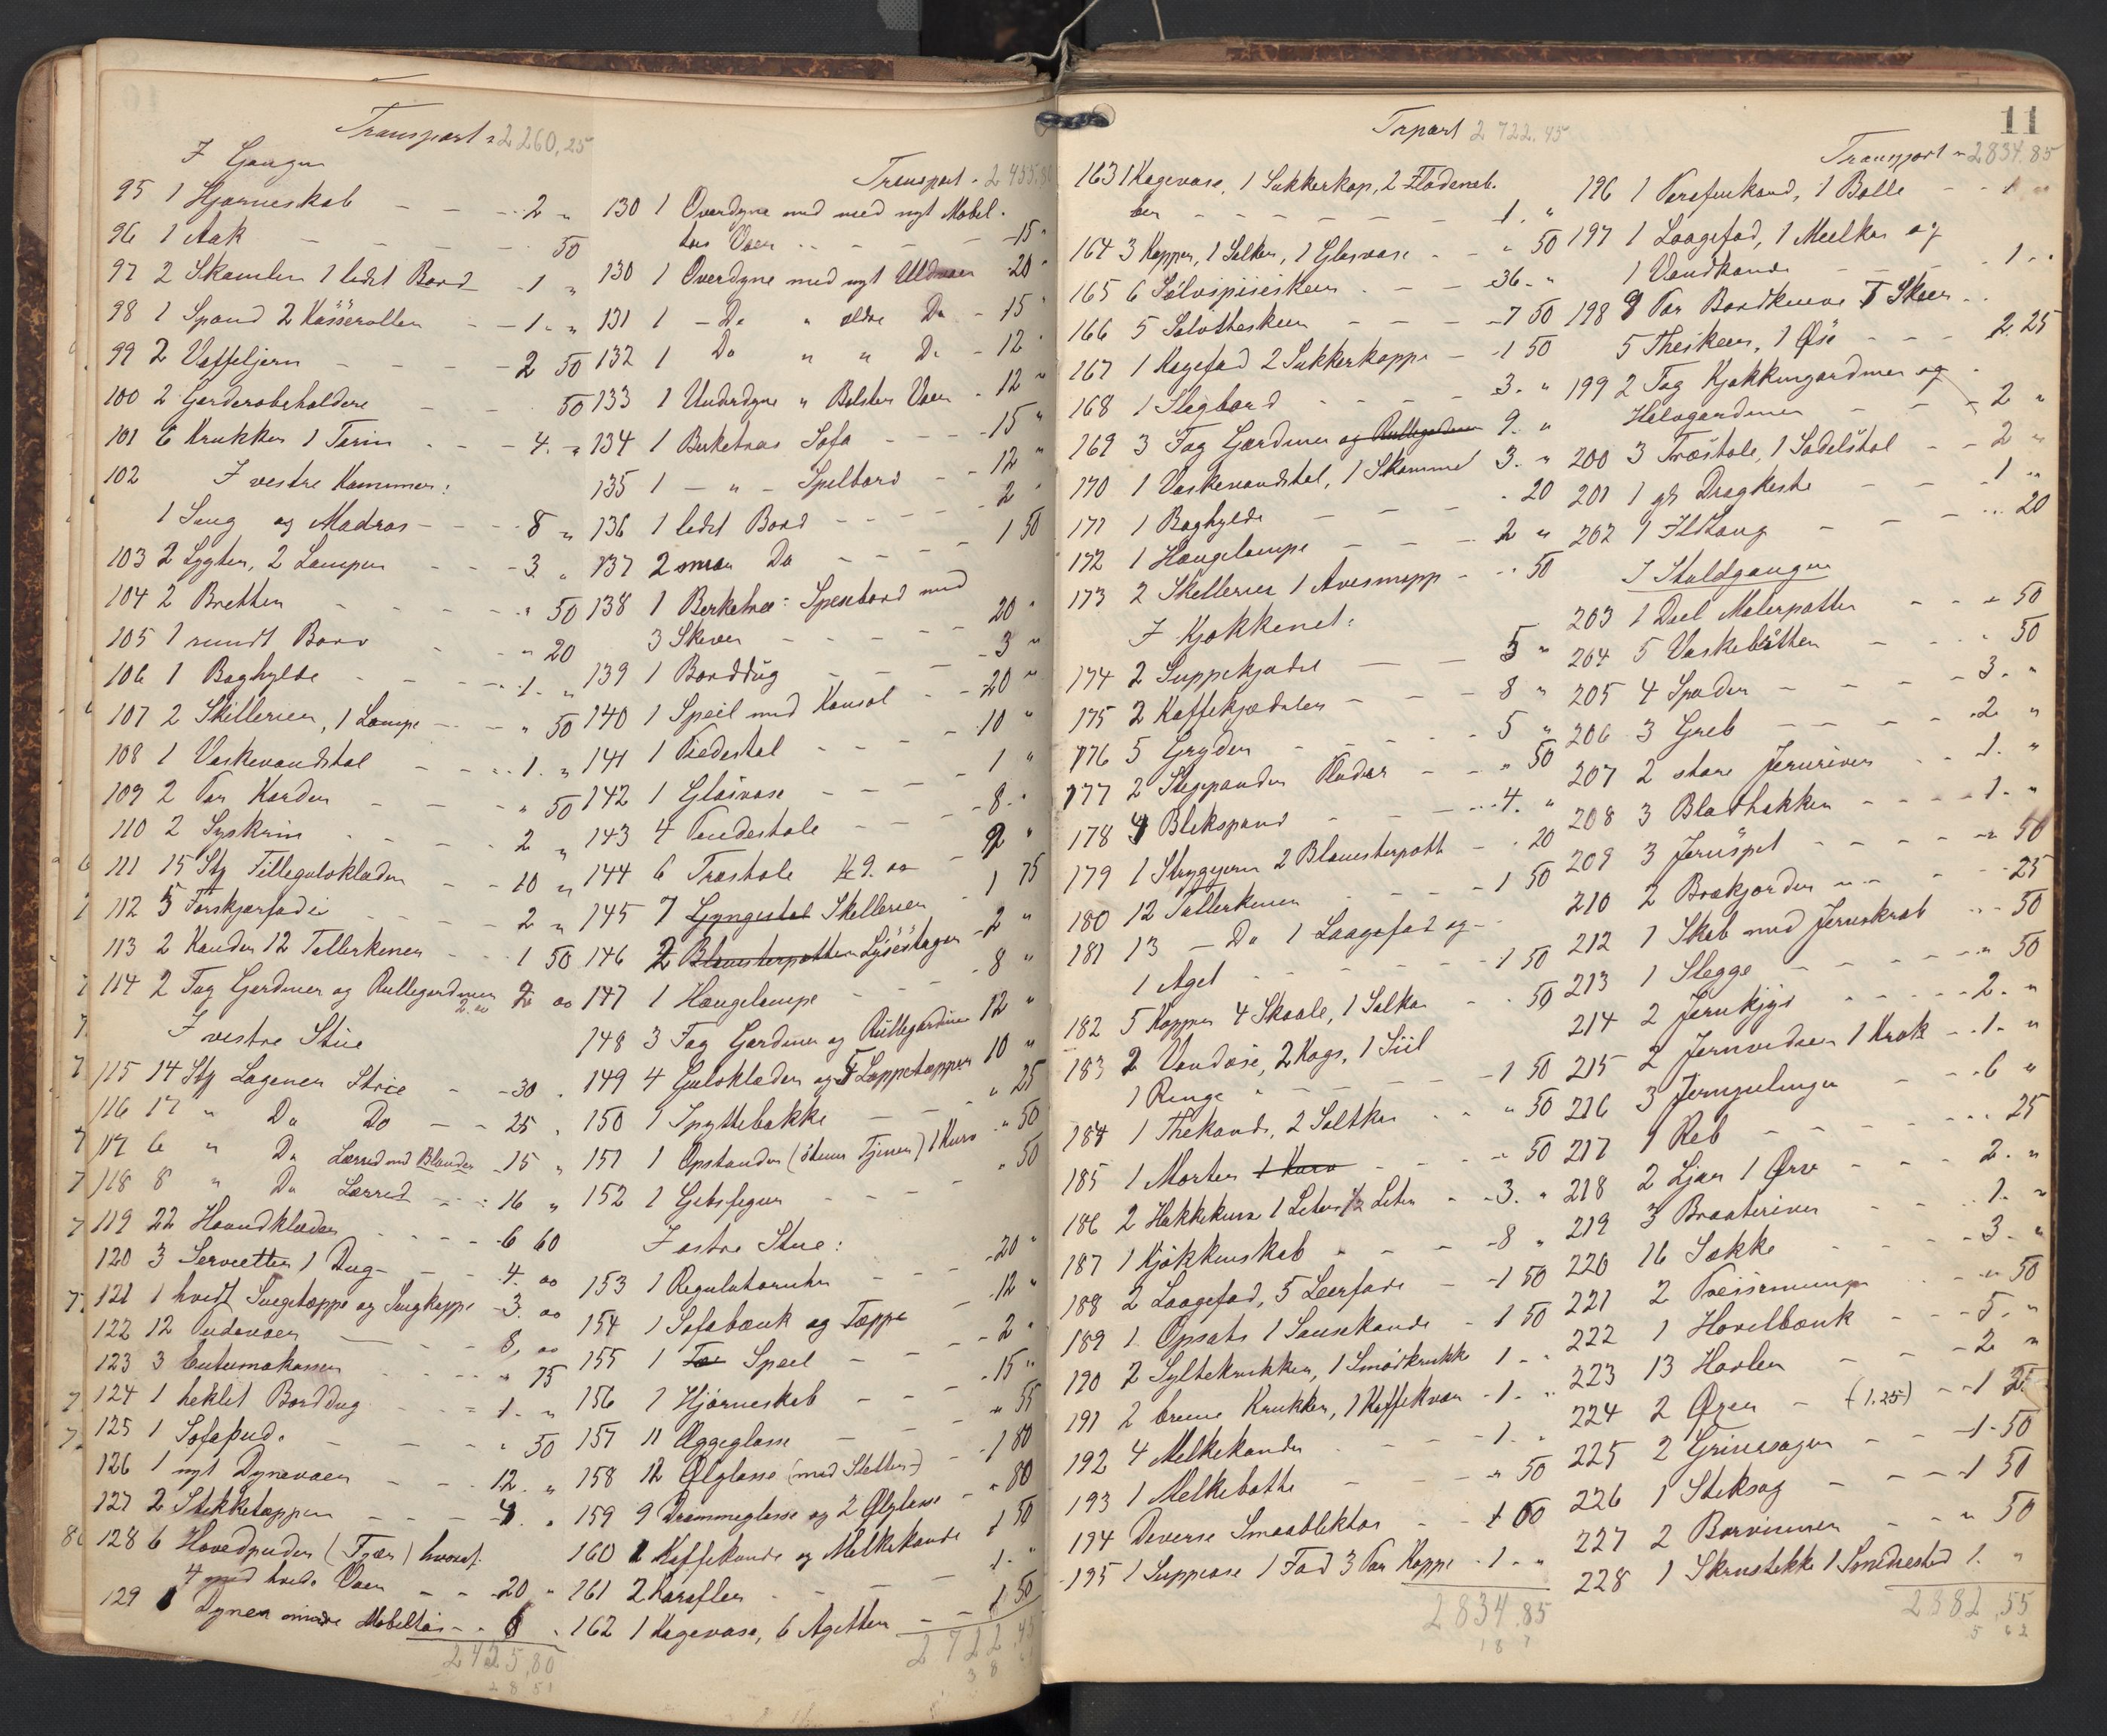 Transport " 2260,25
I Gangen
95 1 Hjørneskab - - - 2 "
96 1 Aak - - - 50
97 2 Skamler 1 lidet Bord - 1 "
98 1 Spand 2 Kasseroller - - 1 "
99 2 Vaffeljern - - - 2 50
100 2 Garderobeholdere - - 50
101 6 Krukker 1 Terin - - - 4. "
102 I vestre Kammer:
1 Seng og Madras - - - 8 "
103 2 Lygter, 2 Lamper - - - 3. "
104 2 Bretter - - - " 50
105 1 rundt Bord - - " 20
106 1 Baghylde - - - 1. "
107 2 Skillerier, 1 Lampe - - " 50
108 1 Vaskevandstol - - - 1. "
109 2 Par Karder - - - " 50
110 2 Syskrin - - - 2 "
111 15 Stk Tillegulvklæder - - 10 "
112 5 Forskjærfade - - - 2 "
113 2 Kander 12 Tallerkener - - 1 50
114 2 Fag Gardiner og Rullegardiner 2 00
2.00
I vestre Stue
115 14 Stk Lagener Strie - - 30 "
116 17 " Do Do - - 25 "
117 6 " Do Lærred med Blonder - 15 "
118 8 " Do Lærred - - 16 "
119 22 Haandklæder - - - 6 60
120 3 Servietter 1 Dug - - - 4. 00
121 1 hvidt Sengetæppe og Sengkappe - 3. 00
122 12 Pudevaer - - - 8, 00
123 3 Enternokasser - - - " 75
124 1 heklet Borddug - - - 1. "
125 1 Sofapude - - - " 50
126 1 nyt Dynevaer - - - 12. "
127 2 Stikketæpper - - - 4. "
128 6 Hovedpuder (Fjær) hvoraf
4 med hvide Vaer - - - 20 "
129 1 Dyner mindre Mobeltøi - - 6 "
2425,80
Transport " 2455.80
130 1 Overdyne med med nyt Mobel-
tøis Vaer - - - 15 "
130 1 Overdyne med nyt Uldvaer 20 "
131 1 - Do " ældre Do - 15 "
132 1 Do " " Do - 12 "
133 1 Underdyne " Bolster Vaer - 12 "
134 1 Berketræs Sofa - - - 15 "
135 1 - " - Spelbord - - 12 "
136 1 lidet Bord - - - 2 "
137 2 smaa Do - - - 1 50
138 1 Berketræs Spisebord med
3 Skiver - - - 20 "
139 1 Borddug - - - 3 "
140 1 Speil med Konsol - - 20 "
141 1 Piedestal - - - 10 "
142 1 Glasvase - - - 1 "
143 4 Pindestole - - - 8. "
144 6 Træstole Kr 9.00 - 9 "
145 7 Gyngestol Skillerier - 1 75
146 2 Blomsterpotter Lysestager - 2 "
147 1 Hængelampe - - - 8 "
148 3 Fag Gardiner og Rullegardiner 12 "
149 4 Gulvklæder og 5 Lappetæpper 10 "
150 1 Spyttebakke - - - " 25
151 1 Opstander (stum Tjener) 1 Kurv " 50
152 1 Gibsfigur - - - " 50
I østre Stue:
153 1 Regulatoruhr - - - 20 "
154 1 Sofabænk og Tæppe - 12 "
155 1 Speil - - - 2 "
156 1 Hjørneskab - - - 15 "
157 11 Æggeglasse - - " 55
158 12 Ølglasse (med Stetter) - 1 80
159 9 Drammeglasse og 2 Ølglasse - " 80
160 1 Kaffekande og Melkekande 1 50
161 2 Karafler - - - 1. "
162 1 Kagevase, 6 Asjetter - - 1 50
2722.45
11
Trport 2722.45
163 1 Kagevase, 1 Sukkerkop, 2 Flødeneb-
ber - - - 1. "
164 3 Kopper, 1 Saltkar, 1 Glasvase - - " 50
165 6 Sølvspiseskeer - - - 36. "
166 5 Sølvtheskeer - - - 7 50
167 1 Kagefad 2 Sukkerkoppe - 1 50
168 1 Slagbord - - - 3. "
169 3 Fag Gardiner og Rullegardiner 9. "
170 1 Vaskevandstol, 1 Skammel 3. "
171 1 Baghylde - - - " 20
172 1 Hængelampe - - - 2 "
173 2 Skillerier 1 Avismappe - - " 50
I Kjøkkenet:
174 2 Suppekjedel - - 5 "
175 2 Kaffekjedeler - - - 8 "
176 5 Gryder - - - 5 "
177 2 Stegpander - - " 50
178 4 Blekspand - - - 4. "
179 1 Strygejern 2 Blomsterpott - " 20
180 12 Tallerkener - - - 1 50
181 13 - Do 1 Laagefad og
1 Aget - - - 1 50
182 5 Kopper 4 Skaale, 1 Saltkar - " 50
183 2 Vandøse, 2 Kogs, 1 Siil
1 Ringe - - - 1 50
184 1 Thekande, 2 Saltkar - - " 50
185 1 Morter 1 Kurv - - " 50
186 2 Hakkekurv 1 Liter 1/2 Liter - 3. "
187 1 Kjøkkenskab - - - 8 "
188 2 Laagefad, 5 Leerfade - 1 50
189 1 Opsats 1 Sausekande - 1 50
190 2 Syltekrukker, 1 Smørkrukke 1 - "
191 2 brune Krukker, 1 Kaffekvær - 1 - "
192 4 Melkekander - - - 1. "
193 1 Melkebøtte - - - " 50
194 Diverse Smaabliktøi - - 1 00
195 1 Suppeøse 1 Fad 3 Par Koppe - 1 - "
2834.85
Transport " 2834.85
196 1 Parafinkande, 1 Balle - - 1 "
197 1 Laagefad, 1 Meelkar og
1 Vandkande - - - 1 - "
198 9 Par Bordknive 7 Skeer - -
5 Theskeer, 1 Øse - - - 2. 25
199 2 Fag Kjøkkengardiner og
Halvgardiner - - - 2 "
200 3 Træstole, 1 Sadelstol - - 2 "
201 1 gl. Dragkiste - - - 1 "
202 1 Ildtang - - - " 20
I Staldgangen
203 1 Deel Malerpotter - - " 50
204 5 Vaskebøtter - - - " 50
205 4 Spader - - - 3. "
206 3 Greb - - - 2. "
207 2 store Jernriver - - 1. "
208 3 Bladhakker - - - 1. "
209 3 Jernspet - - - " 50
210 2 Brækjorder - - - " 25
212 1 Skab med Jernskrab - - " 50
213 1 Slegge - - - " 50
214 2 Jernkjys - - - 2. "
215 2 Jernvidier 1 Krok - - 1. "
216 3 - - 6 "
217 1 Reb - - - " 25
218 2 Ljaar 1 Orv - - - 2. "
219 3 Braateriver - - - 1. "
220 16 Sække - - - 3. "
221 2 - - " 50
222 1 Høvelbænk - - - 5. "
223 13 Høvler - - - 2 "
224 2 Øxer - (1.25) - 1 25
225 2 Grinssager - - 1 - 50
226 1 Stiksag - - - 1 50
227 2 Borvinner - - " 50
228 1 Skruestikke 1 Smedested 1. "
2882,55